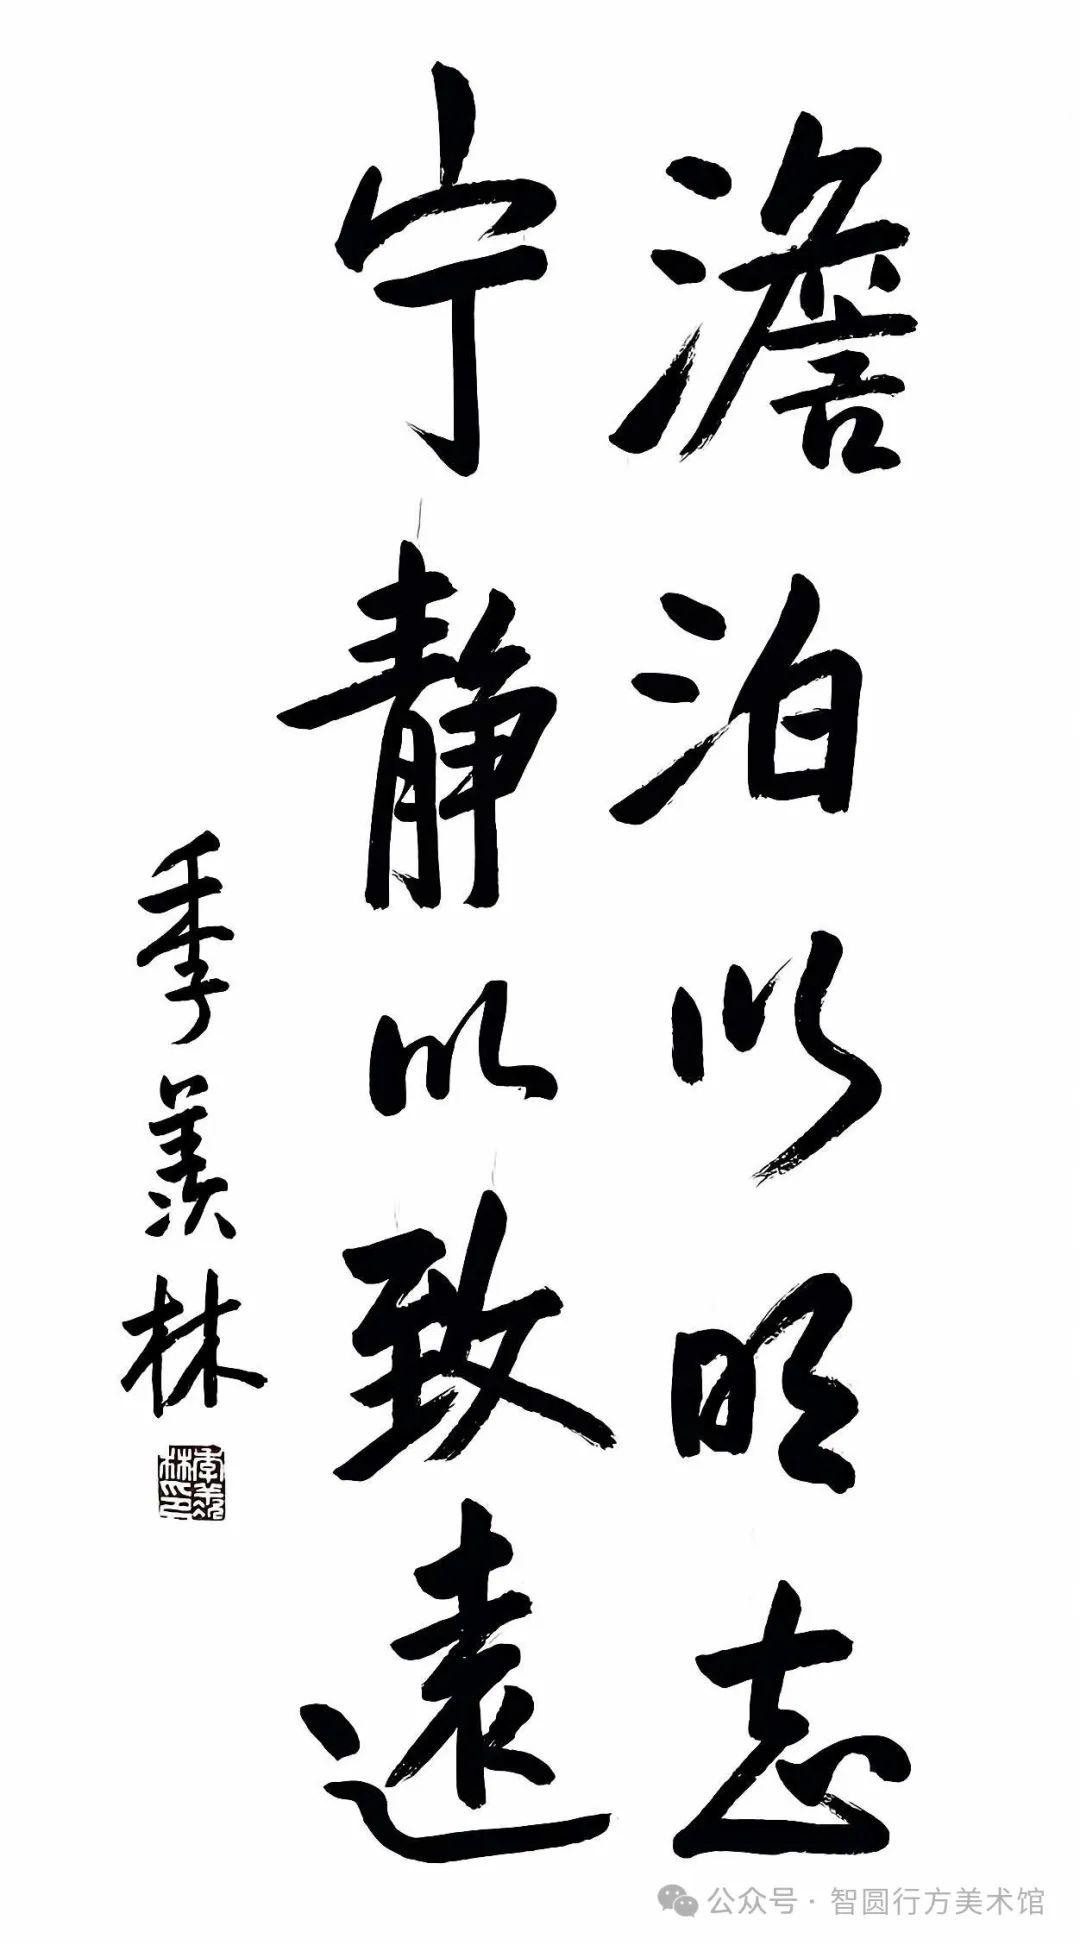 澹泊以明志
宁静以致遠
季羡林
季羡林印
公众号·智圆行方美术馆